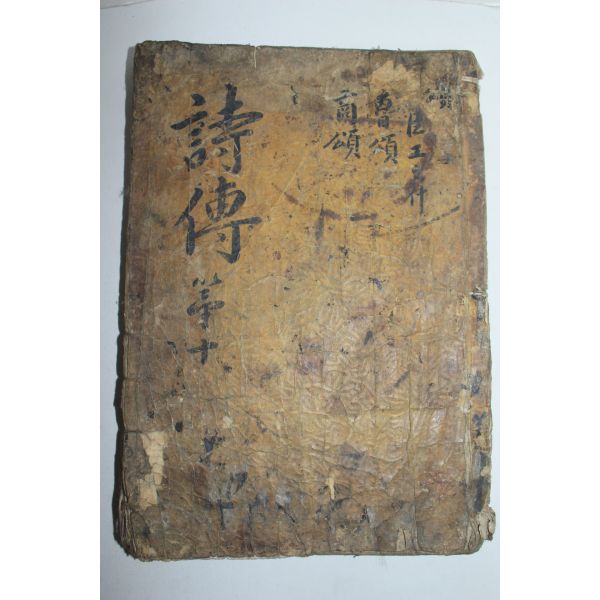 臣工之什
魯頌
商頌
詩傳
第十